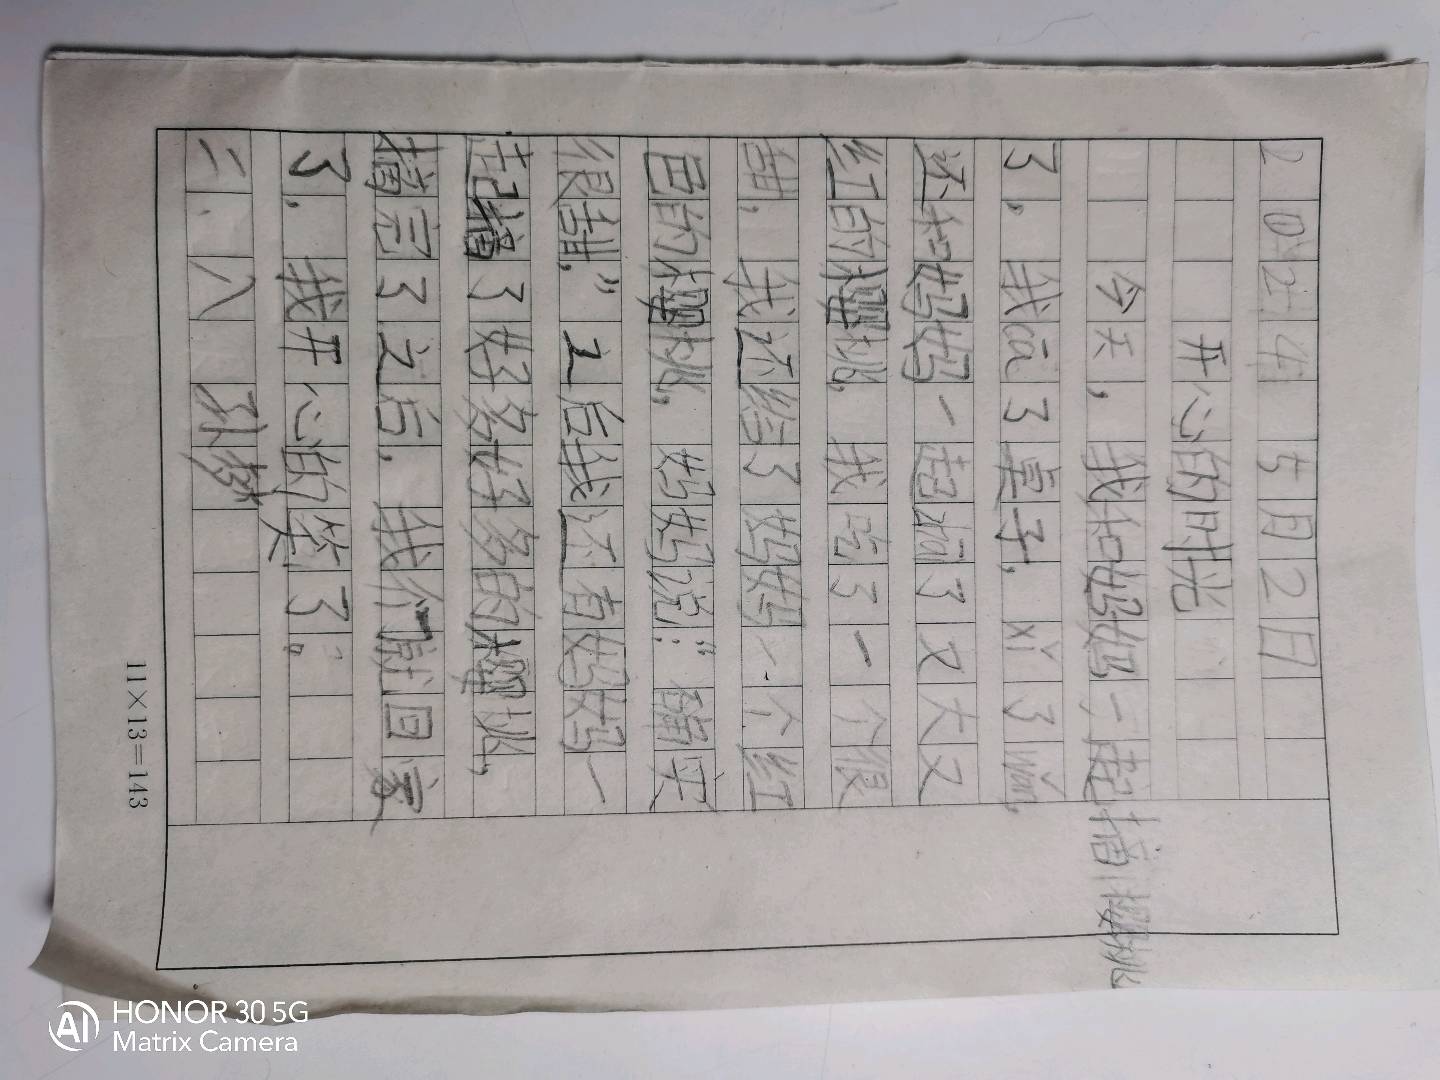 2024 5月2日
开心的时光
今天，我和妈妈一起摘樱桃
了，我cā了桌子，xǐ了wǎn，
还和妈妈一起wā了又大又
红的樱桃，我吃了一个很
甜，我还给了妈妈一个红
色的樱桃，妈妈说：“确实
很甜，”之后我还有妈妈一
起摘了好多好多的樱桃，
摘完了之后，我们就回家
了，我开心的笑了。
二、八 孙梦
11×13=143
HONOR 30 5G
Matrix Camera